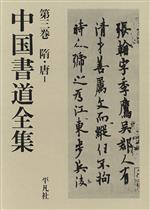 第三巻 隋・唐I
中国書道全集
平凡社
張翰字季鷹吳郡人有
清才善屬文而縱任不拘
時人號之為江東步兵